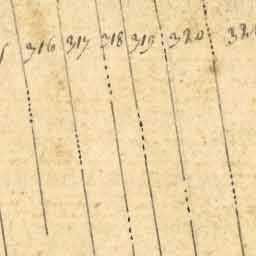 316 317 318 319 320